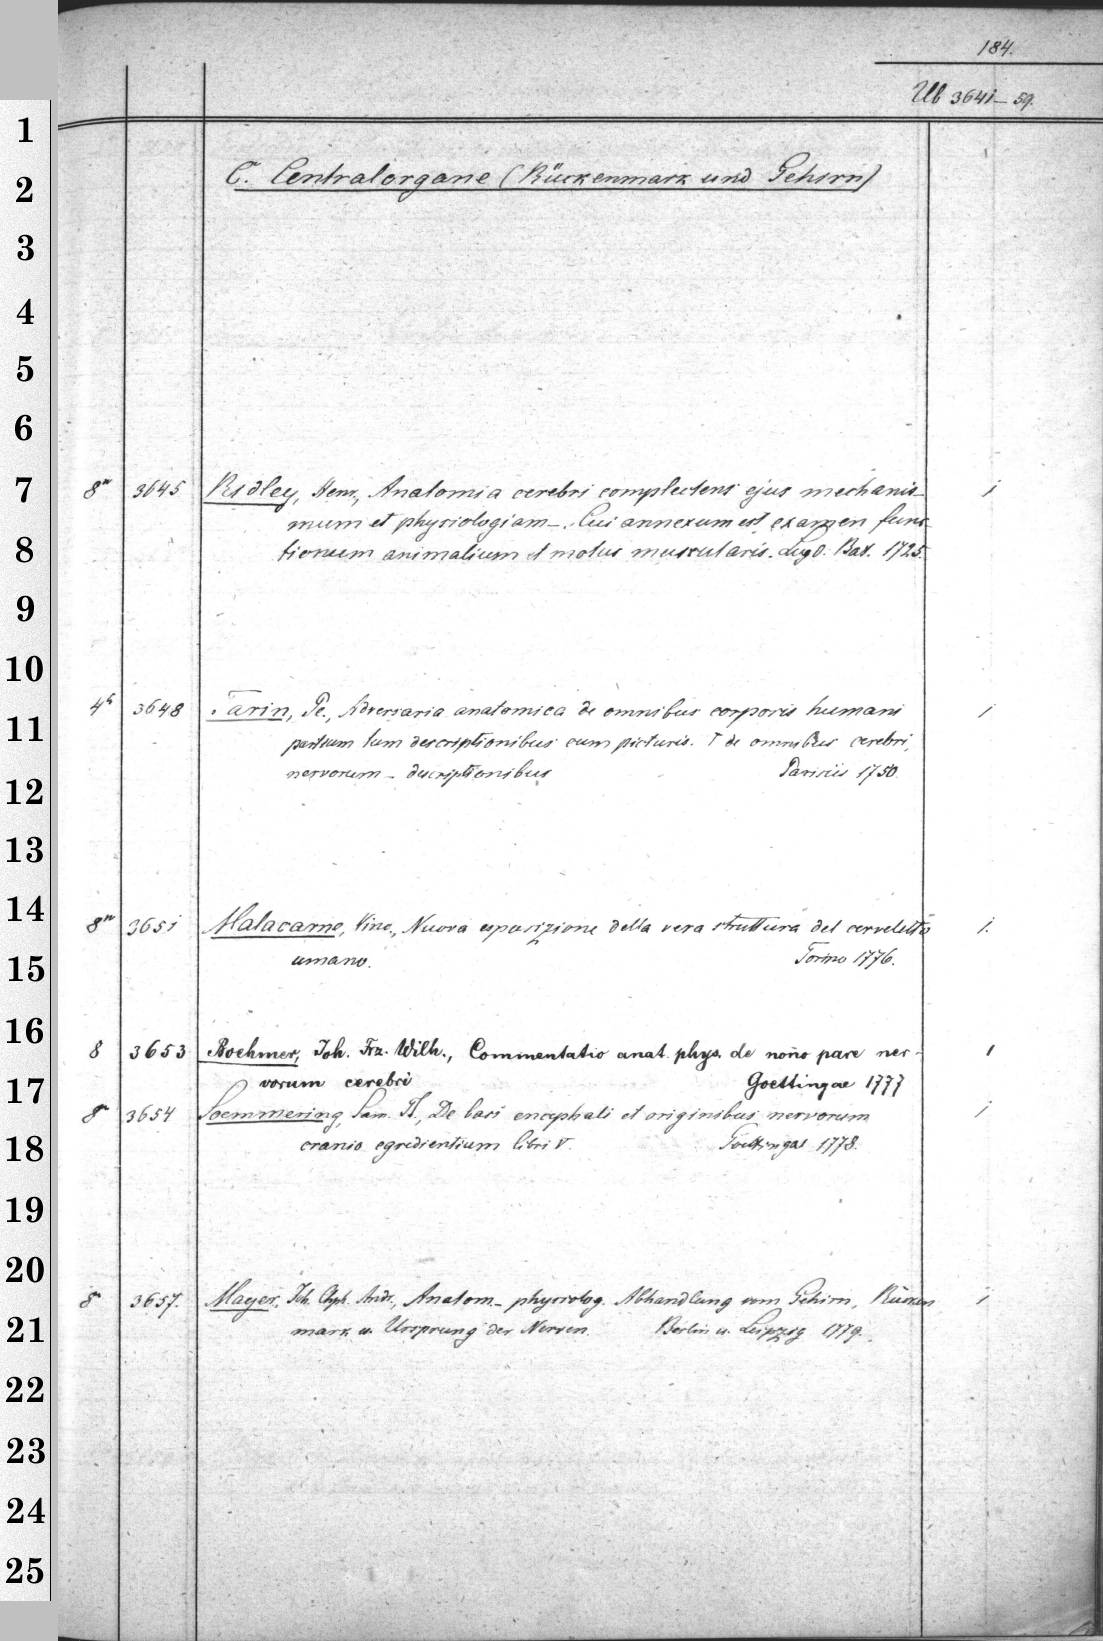 184.
Ub 3641–59.
C. Centralorgane (Rückenmark und Gehirn)
8° 3645 Ridley, Henr., Anatomia cerebri complectens ejus mechanis-
mum et physiologiam –. Cui annexum est examen func-
tionum animalium et motus muscularis. Lugd. Bat. 1725. 1
4° 3648 Tarin, Pe., Adversaria anatomica de omnibus corporis humani 1
partium tum descriptionibus cum picturis. T de omnibus cerebri,
nervorum – descriptionibus Parisiis 1750.
8° 3651 Malacarne, Vinc., Nuova esposizione della vera struttura del cerveletto 1.
umano. Torino 1776.
8 3653 Boehmer, Joh. Frz. Wilh., Commentatio anat. phys. de nono pare ner- 1
vorum cerebri Goettingae 1777
8° 3654 Soemmering, Sam. Th., De basi encephali et originibus nervorum 1
cranio egredientium libri V. Goettingae 1778.
8° 3657. Mayer, Joh. Chph. Andr., Anatom– physiolog. Abhandlung vom Gehirn, Rücken 1
mark u. Ursprung der Nerven. Berlin u. Leipzig 1779.
1
2
3
4
5
6
7
8
9
10
11
12
13
14
15
16
17
18
19
20
21
22
23
24
25